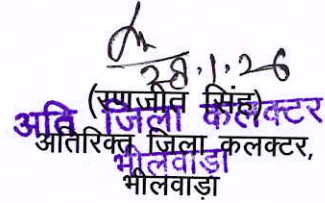 28.1.26
(रणजीत सिंह)
अति जिला कलेक्टर
अतिरिक्त जिला कलक्टर,
भीलवाड़ा
भीलवाड़ा